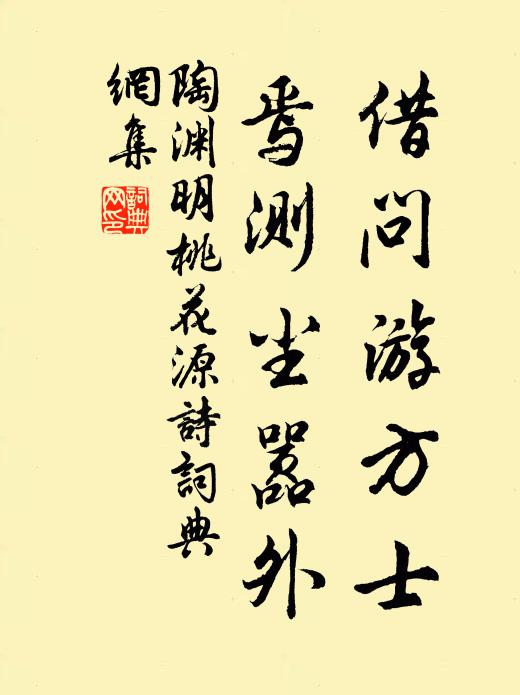 借问游方士
焉测尘嚣外
陶渊明桃花源詩詞典
網集
詞典网印